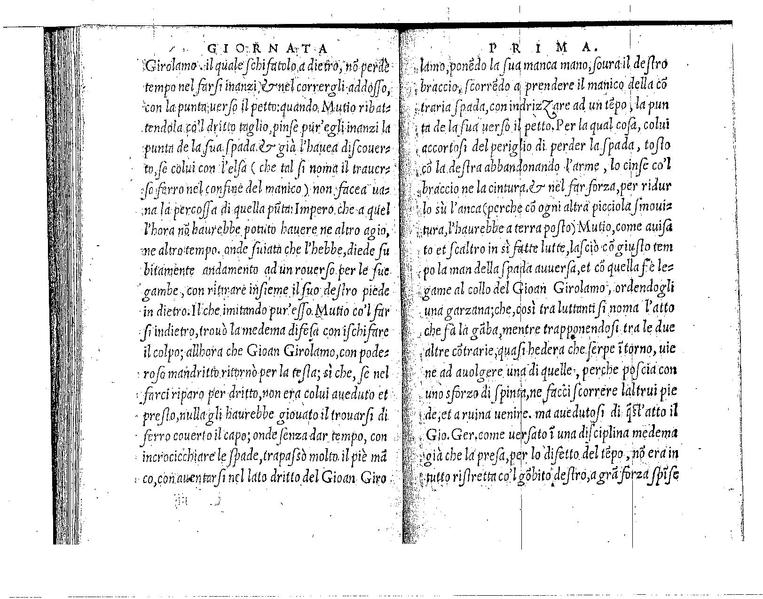 GIORNATA
Girolamo. il quale schifatolo, a dietro, nō perdè
tempo nel farsi inanzi, & nel corrergli addosso,
con la punta verso il petto: quando. Mutio ribat=
tendola co'l dritto taglio, pinse pur'egli inanzi la
punta de la sua. spada. & già l'hauea discouer=
to, se colui con l'elsa ( che tal si noma il trauer=
so ferro nel confine del manico ) non facea ua=
na la percossa di quella pūta: Impero. che a quel
l'hora nō haurebbe potuto hauere ne altro agio,
ne altro tempo. onde suiata che l'hebbe, diede su
bitamente andamento ad un rouerso per le sue
gambe, con ritirare insieme il suo destro piede
in dietro. Il che imitando pur'esso. Mutio co'l far
si indietro, trouò la medema difesa con ischifare
il colpo; allhora che Gioan Girolamo, con pode=
roso mandritto, ritornò per la testa; sì che, se nel
farci riparo per dritto, non era colui aueduto et
presto, nulla gli haurebbe giouato il trouarsi di
ferro couerto il capo; onde senza dar tempo, con
incrocicchiare le spade, trapassò molto. il piè mā
co, con auentarsi nel lato dritto del Gioan Giro
PRIMA.
lamo, ponēdo la sua manca mano, soura il destro
braccio, scorrēdo a prendere il manico della cō
traria spada, con indrizzare ad un tēpo, la pun
ta de la sua uerso il petto. Per la qual cosa, colui
accortosi del periglio di perder la spada, tosto
cō la destra abbandonando l'arme, lo cinse co'l
braccio ne la cintura. & nel far forza, per ridur
lo sù l'anca (perche cō ogni altra picciola smoui=
tura, l'haurebbe a terra posto) Mutio, come auisa
to et scaltro in sì fatte lutte, lasciò cō giusto tem
po la man della spada auuersa, et cō quella fè le=
game al collo del Gioan Girolamo, ordendogli
una garzana; che, così tra luttanti si noma l'atto
che fà la gāba, mentre trapponendosi tra le due
altre cōtrarie, quasi hedera che serpe ī torno, uie
ne ad auolgere una di quelle, perche poscia con
uno sforzo di spinta, ne facci scorrere l'altrui pie
de; et a ruina uenire. ma auedutosi di q̄st'atto il
Gio. Ger. come uersato ī una disciplina medema
già che la presa, per lo disetto del tēpo, nō era in
tutto ristretta co'l gōbito destro, a grā forza spīse